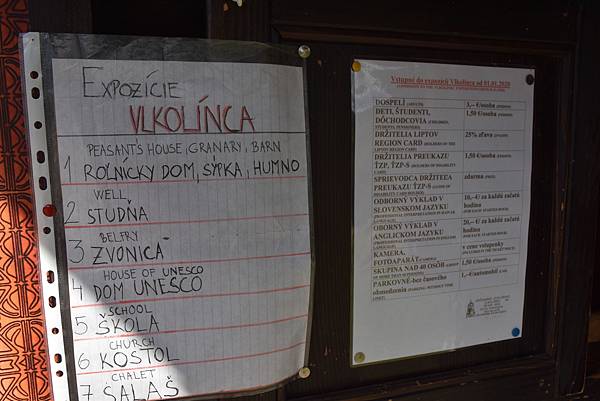 EXPOZÍCIE
VLKOLÍNCA
PEASANT'S HOUSE, GRANARY, BARN
1 ROĽNÍCKY DOM, SÝPKA, HUMNO
WELL
2 STUDŇA
BELFRY
3 ZVONICA
HOUSE OF UNESCO
4 DOM UNESCO
SCHOOL
5 ŠKOLA
CHURCH
6 KOSTOL
CHALET
7 SALAŠ
Vstupné do expozícií Vlkolínca od 01.01.2020
DOSPELÍ (ADULTS) 3,- €/osoba (PERSON)
DETI, ŠTUDENTI, 1,50 €/osoba (PERSON)
DÔCHODCOVIA (CHILDREN,
STUDENTS, PENSIONERS)
DRŽITELIA LIPTOV 25% zľava
REGION CARD (HOLDERS OF THE
LIPTOV REGION CARD)
DRŽITELIA PREUKAZU 1,50 €/osoba (PERSON)
ŤZP, ŤZP-S (HOLDERS OF DISABILITY
CARD)
SPRIEVODCA DRŽITEĽA zdarma (FREE)
PREUKAZU ŤZP-S (GUIDE OF
DISABILITY CARD HOLDER)
ODBORNÝ VÝKLAD V 10,-€/ za každú začatú
SLOVENSKOM JAZYKU hodinu
(PROFESSIONAL INTERPRETATION IN SLOVAK (FOR EACH STARTED HOUR)
LANGUAGE)
ODBORNÝ VÝKLAD V 20,-€/ za každú začatú
ANGLICKOM JAZYKU hodinu
(PROFESSIONAL INTERPRETATION IN ENGLISH (FOR EACH STARTED HOUR)
LANGUAGE)
KAMERA, v cene vstupenky
FOTOAPARÁT (CAMERA) (INCLUDED IN THE TICKET PRICE)
SKUPINA NAD 40 OSÔB (GROUP 1,50 €/osoba (PERSON)
OF MORE THAN 40 PERSONS)
PARKOVNÉ-bez časového 1,-€/automobil (CAR)
obmedzenia (PARKING- WITHOUT TIME
LIMIT)